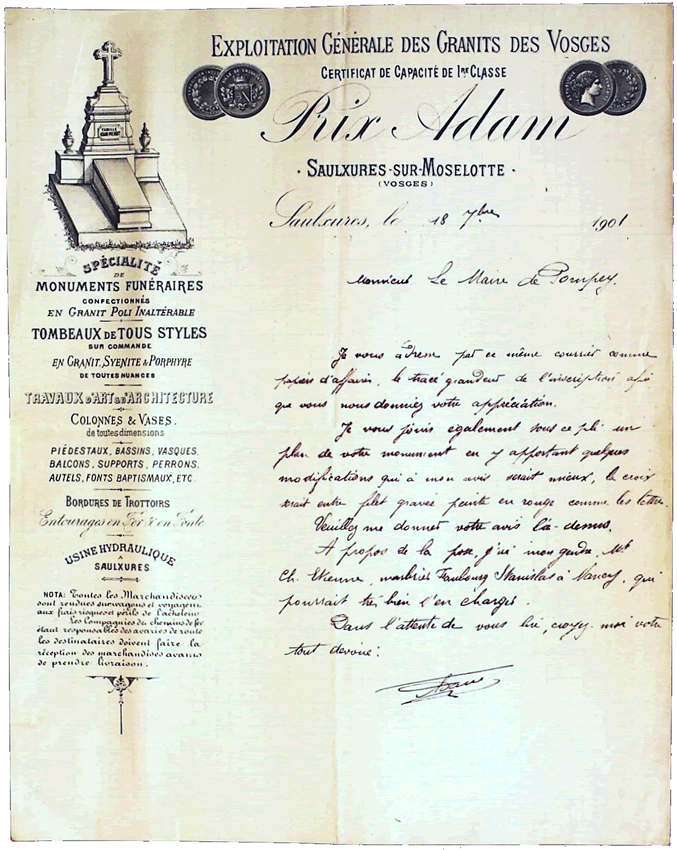 EXPLOITATION GÉNÉRALE DES GRANITS DES VOSGES
CERTIFICAT DE CAPACITÉ DE 1RE CLASSE
Rix Adam
SAULXURES-SUR-MOSELOTTE
(VOSGES)
Saulxures, le 18 7bre 1901
FAMILLE
SPÉCIALITÉ
DE
MONUMENTS FUNÉRAIRES
CONFECTIONNÉS
EN GRANIT POLI INALTÉRABLE
TOMBEAUX DE TOUS STYLES
SUR COMMANDE
EN GRANIT, SYENITE & PORPHYRE
DE TOUTES NUANCES
TRAVAUX D'ART & D'ARCHITECTURE
COLONNES & VASES.
de toutes dimensions
PIÉDESTAUX, BASSINS, VASQUES,
BALCONS, SUPPORTS, PERRONS,
AUTELS, FONTS BAPTISMAUX, ETC.
BORDURES DE TROTTOIRS
Entourages en Fer & en Fonte
USINE HYDRAULIQUE
A
SAULXURES
NOTA: Toutes les Marchandises
sont rendues sur wagons et voyagent
aux frais risques et périls de l'acheteur
Les Compagnies du chemins de fer
étant responsables des avaries de route
les destinataires doivent faire la
réception des marchandises avant
de prendre livraison.
Monsieur Le Maire de Pompey.
Je vous adresse par ce même courrier comme
papiers d'affaires, le tracé grandeur de l'inscription afin
que vous nous donniez votre appréciation.
Je vous joins également sous ce pli un
plan de votre monument en y apportant quelques
modifications qui à mon avis serait mieux, la croix
serait entre filet gravée peinte en rouge comme les lettre.
Veuillez me donner votre avis là-dessus.
A propos de la pose, j'ai mon gendre, Mr
Ch. Etienne, marbrier Faubourg Stanislas à Nancy, qui
pourrait très bien s'en charger.
Dans l'attente de vous lire, croyez-moi votre
tout dévoué: